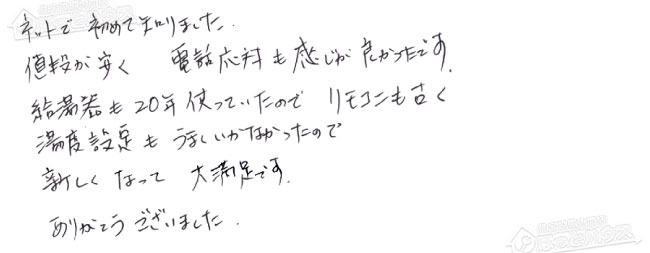 ネットで 初めて知りました.
値段が安く 電話応対も感じが良かったです.
給湯器も20年使っていたので リモコンも古く
湯度設定も うまくいかなかったので
新しくなって 大満足です.
ありがとうございました.